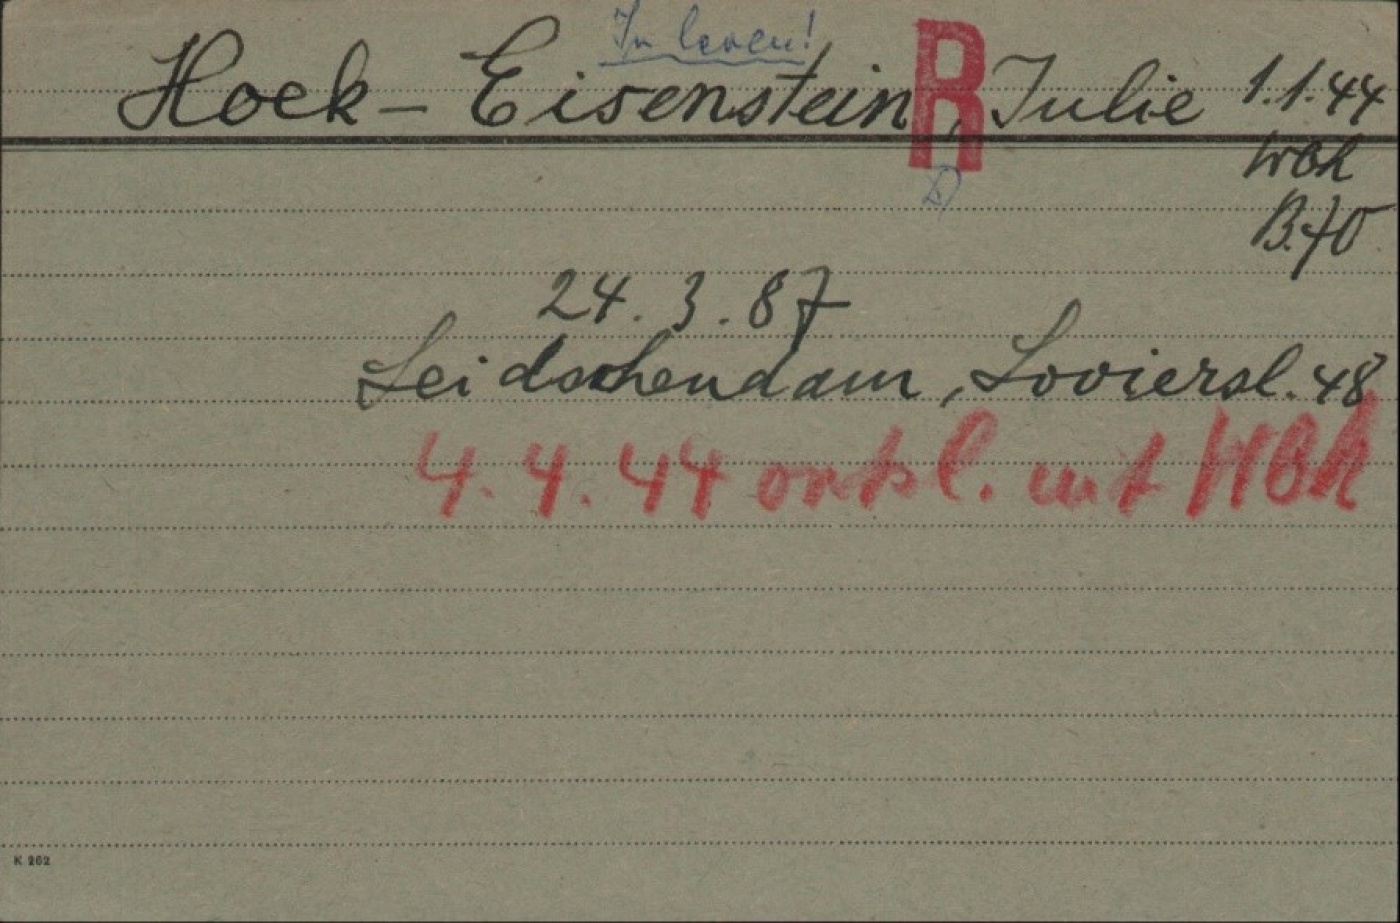 In leven!
Hoek - Eisenstein, Julie 1.1.44
R
Wbk
B.70
24.3.87
Leidschendam, Looiersl. 48
4.4.44 ontsl. uit WBK
K 262